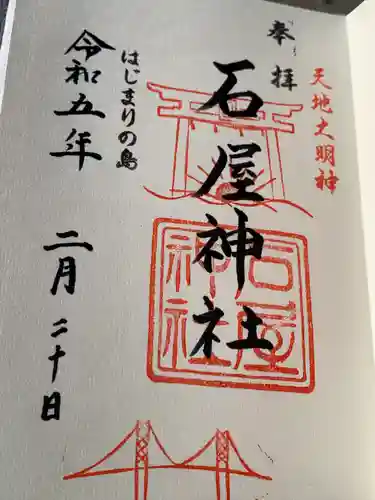 天地大明神
奉拝
石屋神社
石屋神社
はじまりの島
令和五年
二月二十日